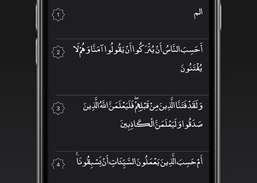 الم
١
أَحَسِبَ النَّاسُ أَنْ يُتْرَكُوا أَنْ يَقُولُوا آمَنَّا وَهُمْ لَا
يُفْتَنُونَ
٢
وَلَقَدْ فَتَنَّا الَّذِينَ مِنْ قَبْلِهِمْ فَلَيَعْلَمَنَّ اللَّهُ الَّذِينَ
صَدَقُوا وَلَيَعْلَمَنَّ الْكَاذِبِينَ
٣
أَمْ حَسِبَ الَّذِينَ يَعْمَلُونَ السَّيِّئَاتِ أَنْ يَسْبِقُونَا
٤